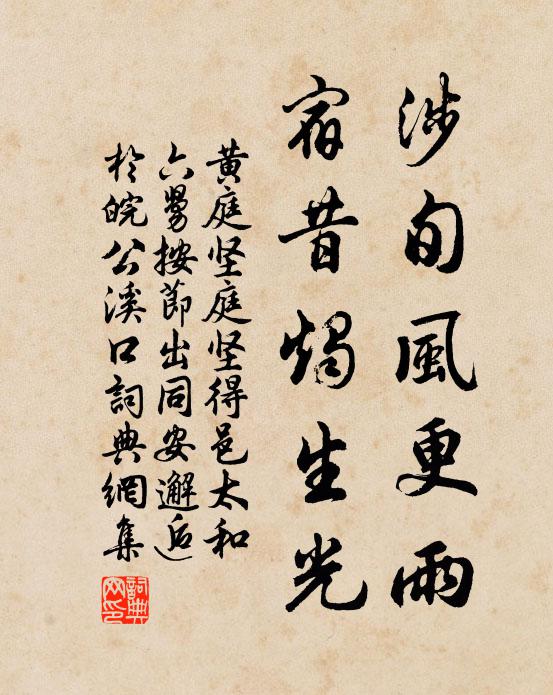 涉旬風更雨
宿昔燭生光
黄庭坚庭坚得邑太和
六舅按節出同安邂逅
於皖公溪口詞典網集
詞典网印